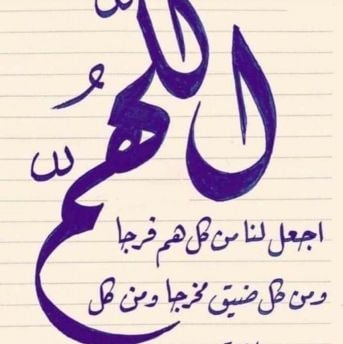 اللهم
اجعل لنا من كل هم فرجا
ومن كل ضيق مخرجا ومن كل